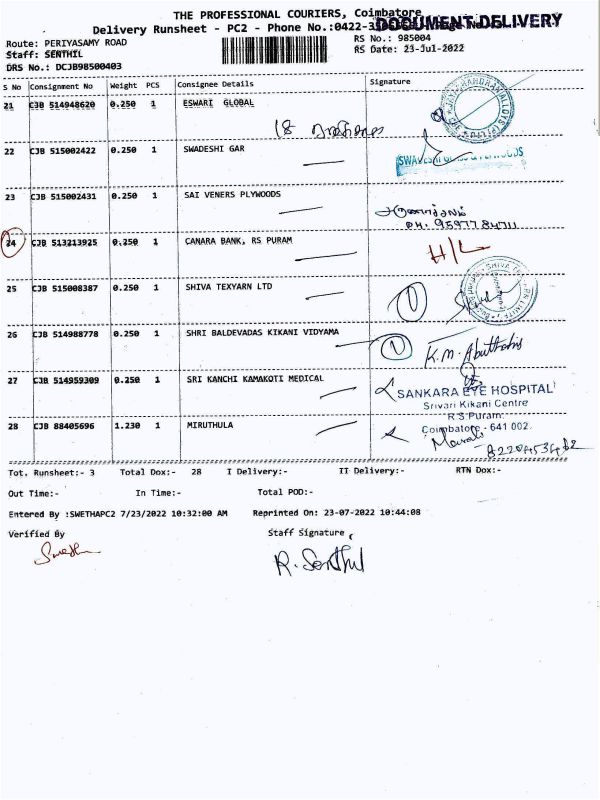 THE PROFESSIONAL COURIERS, Coimbatore
DOCUMENT DELIVERY
Delivery Runsheet - PC2 - Phone No.:0422-
Route: PERIYASAMY ROAD
RS No.: 985004
Staff: SENTHIL
RS Date: 23-Jul-2022
DRS No.: DCJB98500403
S No Consignment No Weight PCS Consignee Details Signature
21 CJB 514948620 0.250 1 ESWARI GLOBAL
22 CJB 515002422 0.250 1 SWADESHI GAR
23 CJB 515002431 0.250 1 SAI VENERS PLYWOODS
24 CJB 513213925 0.250 1 CANARA BANK, RS PURAM
H/L
25 CJB 515008387 0.250 1 SHIVA TEXYARN LTD
1
26 CJB 514988778 0.250 1 SHRI BALDEVADAS KIKANI VIDYAMA
1
K.M.
27 CJB 514959309 0.250 1 SRI KANCHI KAMAKOTI MEDICAL
SANKARA EYE HOSPITAL
Srivari Kikani Centre
R.S Puram
28 CJB 88405696 1.230 1 MIRUTHULA
Coimbatore - 641 002.
Tot. Runsheet:- 3 Total Dox:- 28 I Delivery:- II Delivery:- RTN Dox:-
Out Time:- In Time:- Total POD:-
Entered By :SWETHAPC2 7/23/2022 10:32:00 AM Reprinted On: 23-07-2022 10:44:08
Verified By Staff Signature
R. Senthil